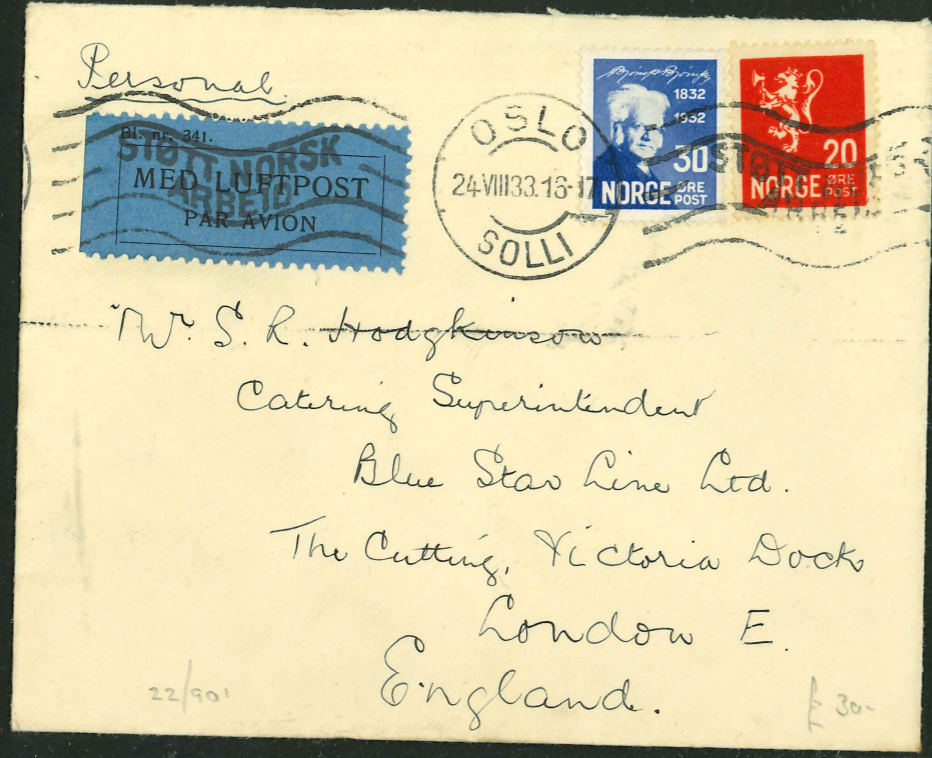 Personal
Bl. nr. 341.
STØTT NORSK
ARBEID
MED LUFTPOST
PAR AVION
OSLO
24.VIII.33.16-17
SOLLI
1832
1932
30
NORGE ØRE
POST
20
NORGE ØRE
POST
STØTT
ARBEID
Mr. S. R. Hodgkinson
Catering Superintendent
Blue Star Line Ltd.
The Cutting, Victoria Dock
London E.
England.
22/901
£ 30-